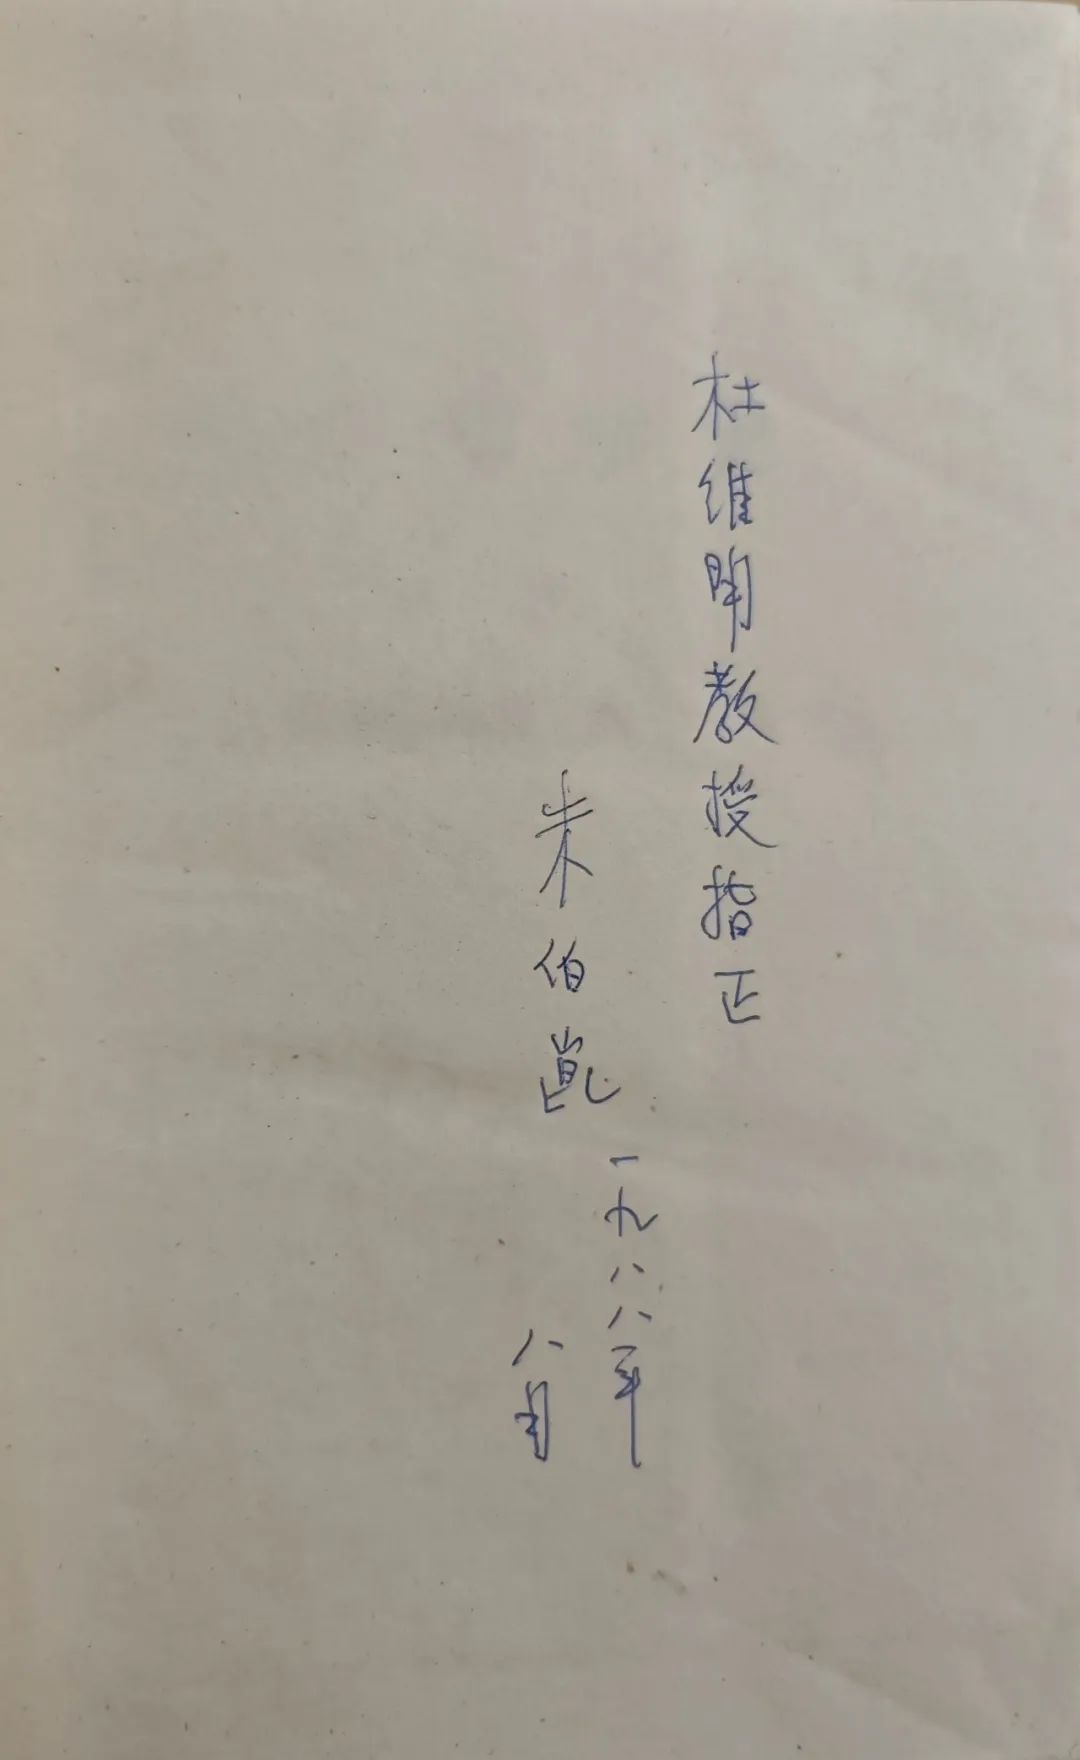 杜维明教授指正
朱伯崑
一九八八年
八月